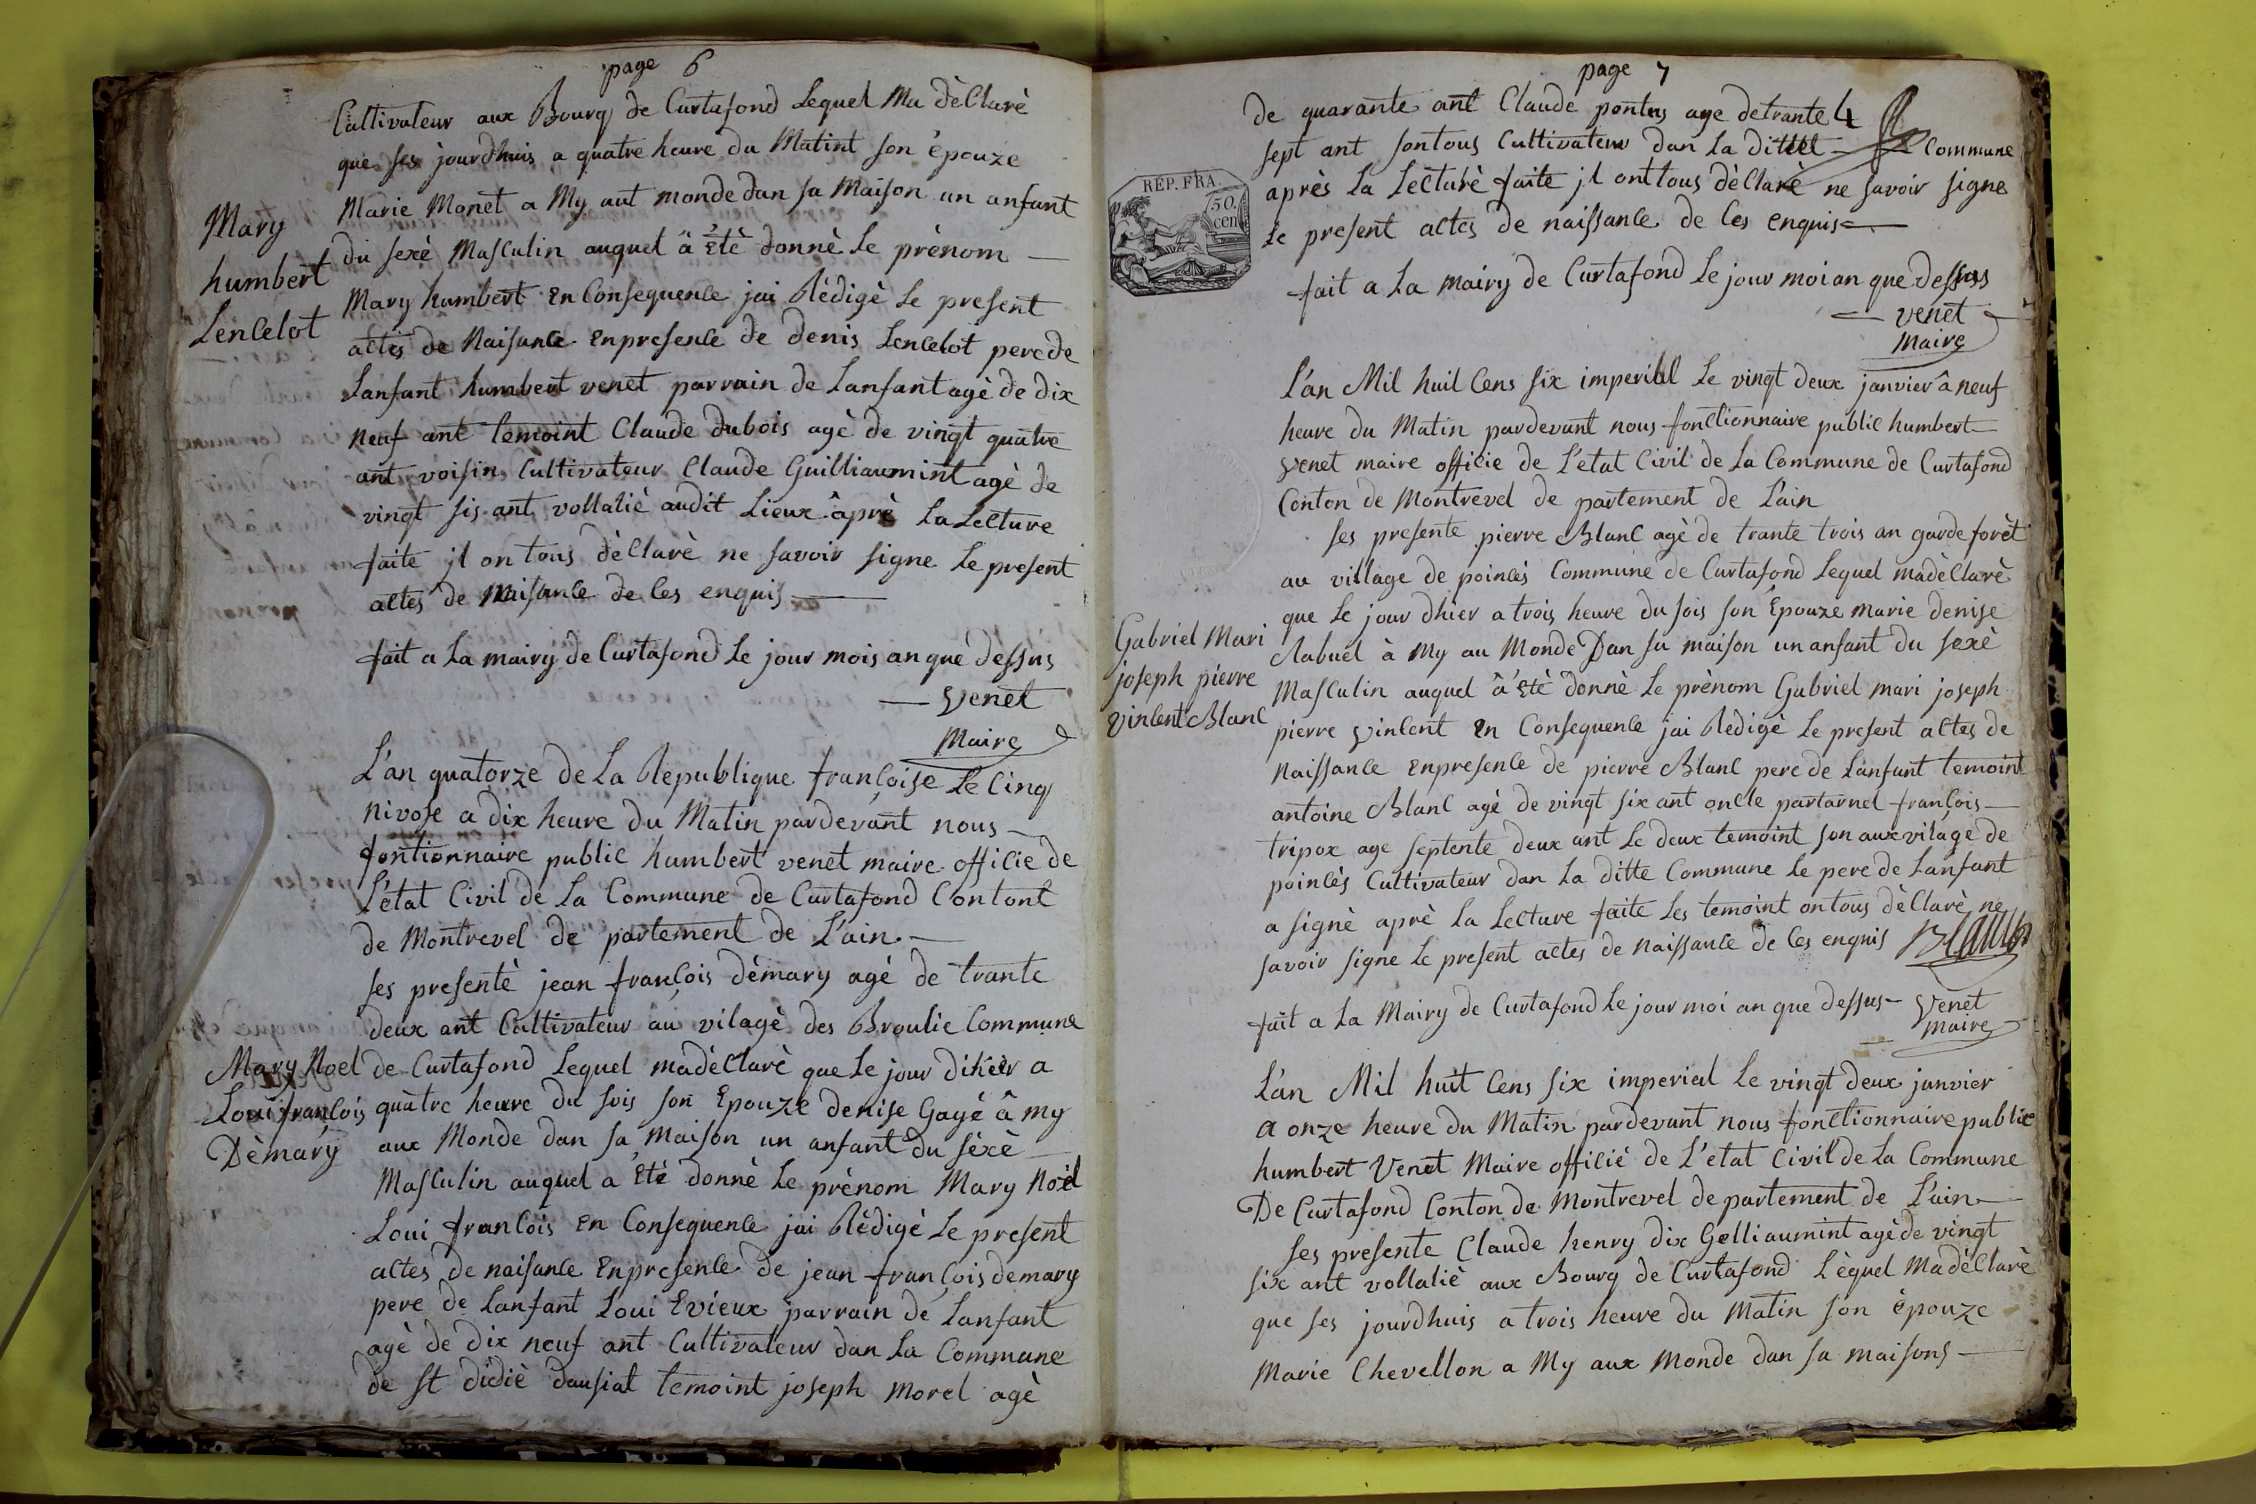 page 6
Cultivateur aux Bourg de Curtafond Lequel Ma dèClarè
que ses jourdhuis a quatre heure du Matint son èpouze
Marie Monet a My aut monde dan sa Maison un anfant
du sexè Masculin auquel â Ètè donnè Le prènom
Mary humbert En Consequence jai Rèdigè Le present
actes de Naisance Enpresence de denis Lencelot pere de
Lanfant humbert venet parrain de Lanfant agè de dix
neuf ant temoint Claude dubois agè de vingt quatre
ant voisin Cultivateur Claude Guilliaumint agè de
vingt sis ant vollaliè audit Lieux âprè La Lecture
faite jl on tous dèClarè ne savoir signe Le present
actes de Naisance de Ces enquis
Mary
humbert
Lencelot
fait a La mairy de Curtafond Le jour mois an que dessus
venet
Maire
L'an quatorze de La Rèpublique françoise Le Cinq
nivose a dix heure du Matin pardevant nous
fontionnaire public humbert venet maire officie de
L'état Civil de La Commune de Curtafond Contont
de Montrevel de partement de L'ain
ses presentè jean françois dèmary agé de trante
deux ant Cultivateur au vilagè des Broulie Commune
de Curtafond Lequel madèClarè que Le jour dihier a
quatre heure du sois son Epouze denise Gayé â my
aux Monde dan sa maison un anfant du sèxè
Masculin auquel a Ètè donnè Le prènom Mary Noël
Loui francois En Consequence jai Rèdigè Le present
actes de naisance Enpresence de jean françois demary
pere de Lanfant Loui Evieux parrain de Lanfant
agè de dix neuf ant Cultivateur dan La Commune
de St didiè dausiat temoint joseph Morel agè
Mary Noel
Loui françois
Dèmary
page 7
de quarante ant Claude ponthus age detrante
sept ant sontous Cultivateur dan La ditte Commune
après La Lecturè faite jl ont tous dèClarè ne savoir signe
Le present actes de naissance de Ces enquis
REP. FRA.
50.
cen
fait a La mairy de Curtafond Le jour moi an que dessus
venet
Maire
L'an Mil huil Cens six imperial Le vingt deux janvier â neuf
heure du Matin pardevant nous fonctionnaire public humbert
venet maire officie de L'état Civil de La Commune de Curtafond
Conton de Montrevel de partement de L'ain
ses presente pierre Blanc agè de trante trois an gardeforèt
au village de poincès Commune de Curtafond Lequel madèClarè
que Le jour dhier a trois heure du sois son Èpouze marie denise
Rabuel à My au Monde Dan sa maison un anfant du sexè
Masculin auquel â Ètè donnè Le prènom Gabriel mari joseph
pierre vincent En Consequence jai Rèdigè Le present actes de
Naissance Enpresence de pierre Blanc pere de Lanfant temoint
antoine Blanc agè de vingt six ant oncle partarnel françois
tripoz age septente deux ant Le deux temoint son aux vilage de
poincès Cultivateur dan La ditte Commune Le pere de Lanfant
a signè aprè La Lecture faite Les temoint on tous dèClarè ne
savoir signe Le present actes de naissance de Ces enquis Blanc
Gabriel Mari
joseph pierre
vincent Blanc
fait a La Mairy de Curtafond Le jour moi an que dessus venet
maire
L'an Mil huit Cens six imperial Le vingt deux janvier
a onze heure du Matin pardevant nous fonctionnaire public
humbert Venet Maire officiè de L'état Civil de La Commune
De Curtafond Conton de Montrevel de partement de L'ain
ses presente Claude henry dix Gelliaumint agè de vingt
six ant vollaliè aux Bourg de Curtafond Lèquel MadèClarè
que ses jourdhuis a trois heure du Matin son èpouze
Marie Chevellon a My aux Monde dan sa maisons